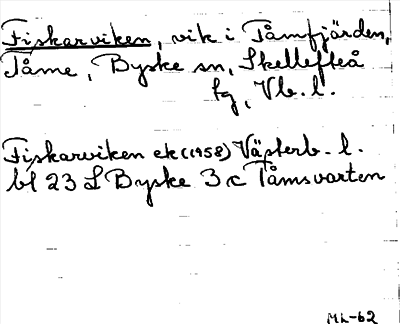 Fiskarviken, vik i Tåmfjärden,
Tåme, Byske sn, Skellefteå
tg, Vb. l.
Fiskarviken ek (1958) Västerb. l.
bl 23 L Byske 3 c Tåmsvarten
ML-62